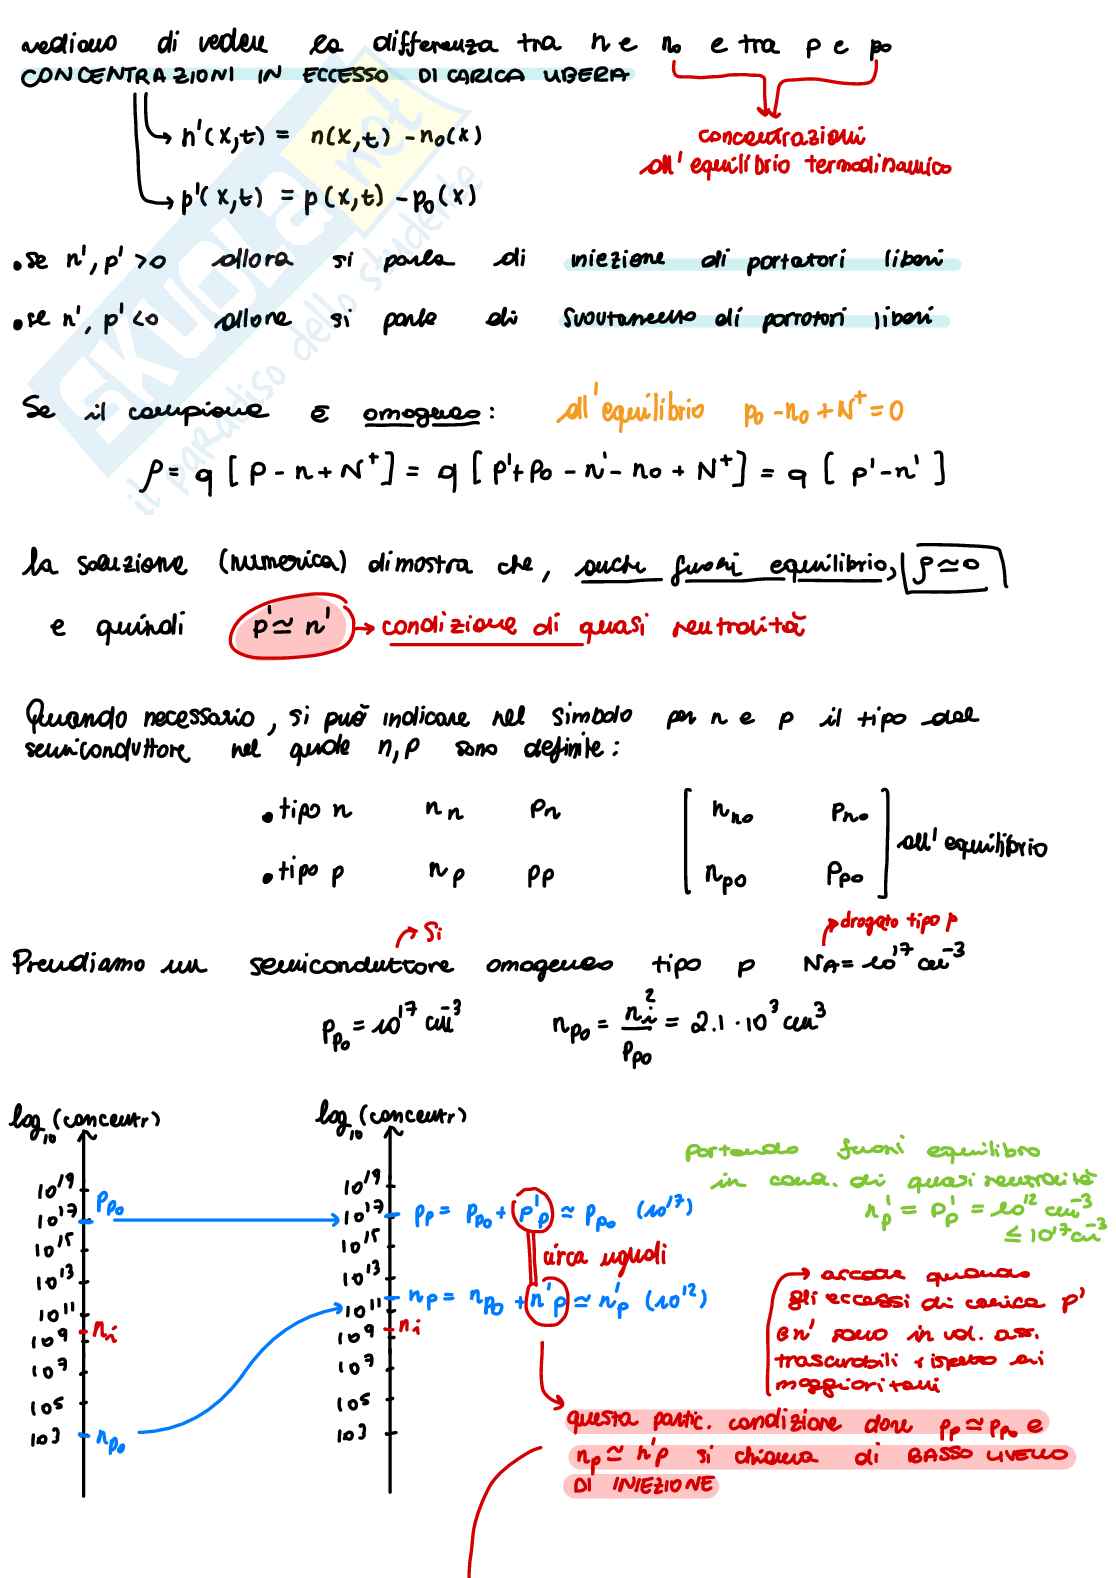 vediamo di vedere la differenza tra n e n₀ e tra p e p₀
CONCENTRAZIONI IN ECCESSO DI CARICA LIBERA
n'(x,t) = n(x,t) - n₀(x)
concentrazioni
all'equilibrio termodinamico
p'(x,t) = p(x,t) - p₀(x)
• se n', p' >0 allora si parla di iniezione di portatori liberi
• se n', p' <0 allora si parla di svuotamento di portatori liberi
Se il campione è omogeneo: all'equilibrio p₀ - n₀ + N⁺ = 0
ρ = q [p - n + N⁺] = q [p' + p₀ - n' - n₀ + N⁺] = q [p' - n']
la soluzione (numerica) dimostra che, anche fuori equilibrio, ρ ≃ 0
e quindi p' ≃ n' → condizione di quasi neutralità
Quando necessario, si può indicare nel simbolo per n e p il tipo del
semiconduttore nel quale n, p sono definite:
• tipo n nₙ pₙ [ nₙ₀ pₙ₀ ]
all'equilibrio
• tipo p nₚ pₚ [ nₚ₀ pₚ₀ ]
Si
drogato tipo p
Prendiamo un semiconduttore omogeneo tipo p N_A = 10¹⁷ cm⁻³
pₚ₀ = 10¹⁷ cm⁻³ nₚ₀ = nᵢ²/pₚ₀ = 2.1 · 10³ cm³
log₁₀ (concentr)
10¹⁹
pₚ₀
10¹⁷
10¹⁵
10¹³
10¹¹
nᵢ
10⁹
10⁷
10⁵
10³ nₚ₀
log₁₀ (concentr)
10¹⁹
10¹⁷ pₚ = pₚ₀ + p'ₚ ≃ pₚ₀ (10¹⁷)
10¹⁵
circa uguali
10¹³
nₚ = nₚ₀ + n'ₚ ≃ n'ₚ (10¹²)
10¹¹
10⁹ nᵢ
10⁷
10⁵
10³
portando fuori equilibro
in cond. di quasi neutralità
n'ₚ = p'ₚ = 10¹² cm⁻³
≤ 10¹⁷ cm⁻³
accade quando
gli eccessi di carica p'
e n' sono in val. ass.
trascurabili rispetto ai
maggioritari
questa partic. condizione dove pₚ ≃ pₚ₀ e
nₚ ≃ n'ₚ si chiama di BASSO LIVELLO
DI INIEZIONE
SKUOLA.net
il paradiso dello studente